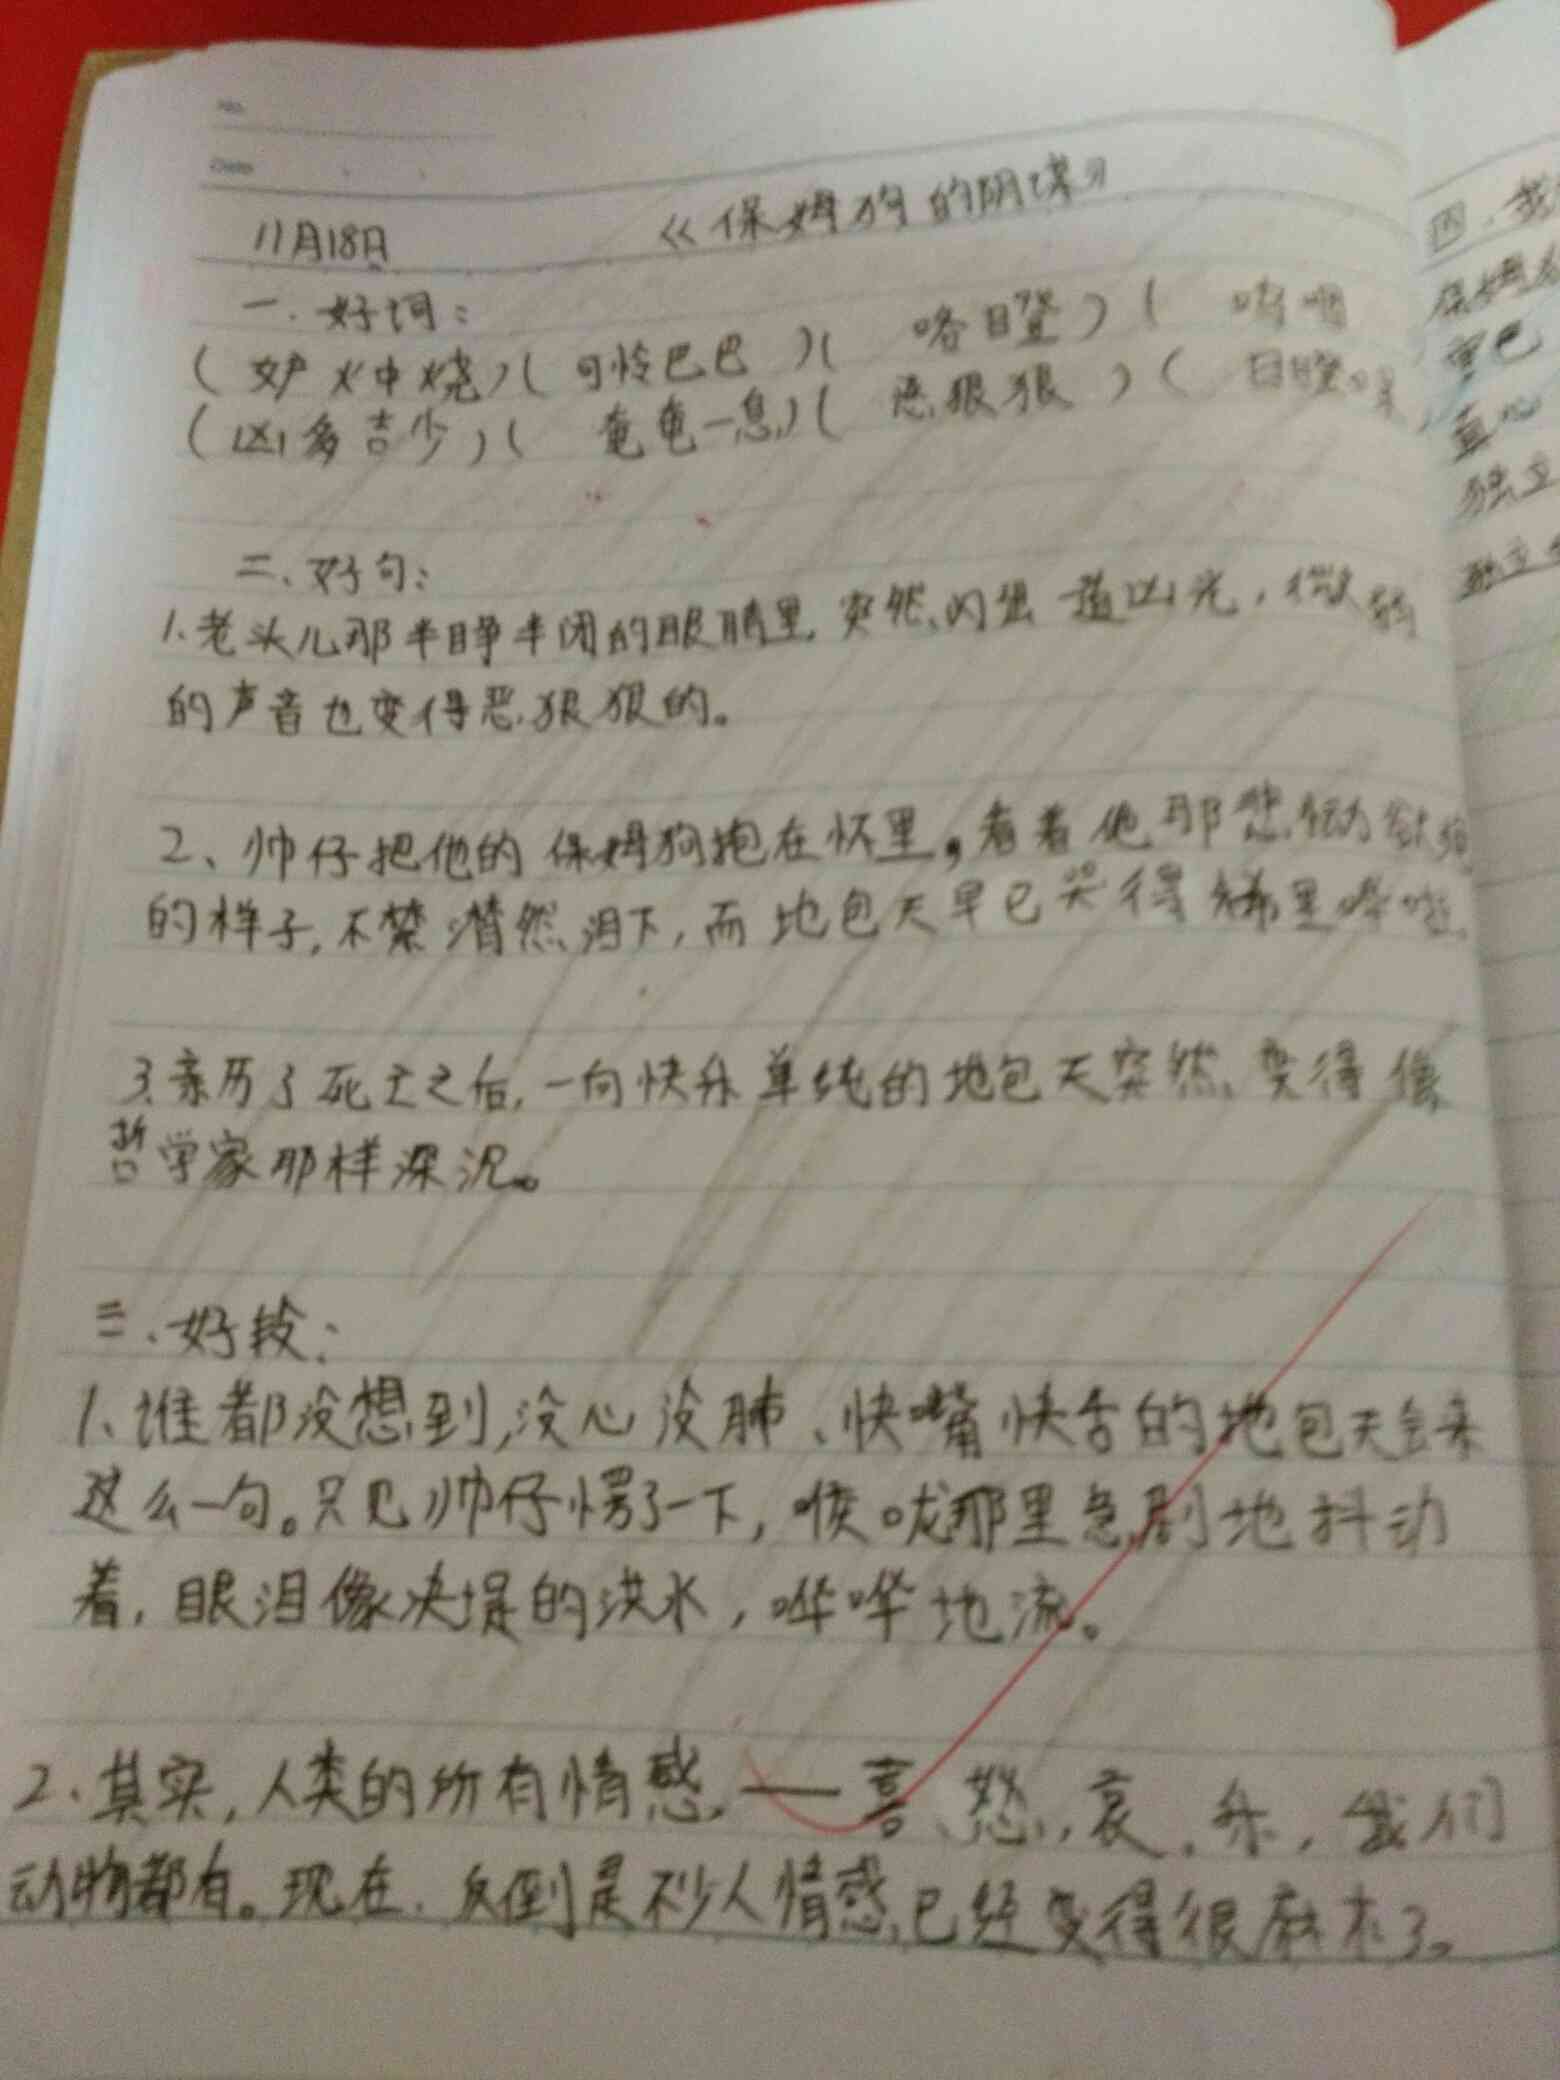 No.
Date
11月18日 《保姆狗的阴谋》
一.好词:
(妒火中烧)(可怜巴巴)(咯噔)(
(凶多吉少)(奄奄一息)(恶狠狠)(
二、好句:
1.老头儿那半睁半闭的眼睛里,突然闪出一道凶光,微弱
的声音也变得恶狠狠的。
2、帅仔把他的保姆狗抱在怀里,看着他那悲恸欲绝
的样子,不禁潸然泪下,而地包天早已哭得稀里哗啦。
3.亲历了死亡之后,一向快乐单纯的地包天突然变得像
哲学家那样深沉。
三.好段:
1、谁都没想到,没心没肺、快嘴快舌的地包天会来
这么一句。只见帅仔愣了一下,喉咙那里急剧地抖动
着,眼泪像决堤的洪水,哗哗地流。
2.其实,人类的所有情感——喜、怒、哀、乐,我们
动物都有。现在,反倒是不少人情感已经变得很麻木了。
四.我
保姆
直心
独立
独立